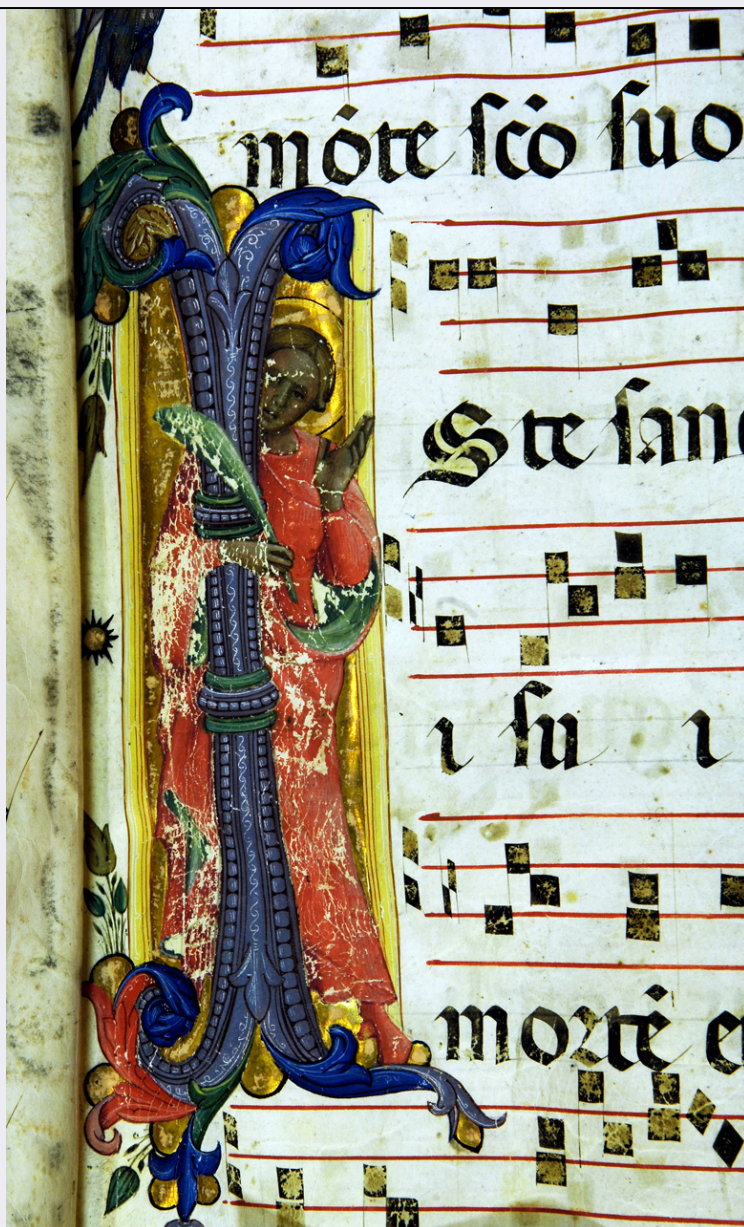 mōte ſcō ſuo
ISte ſanc
i ſu i
mortē e